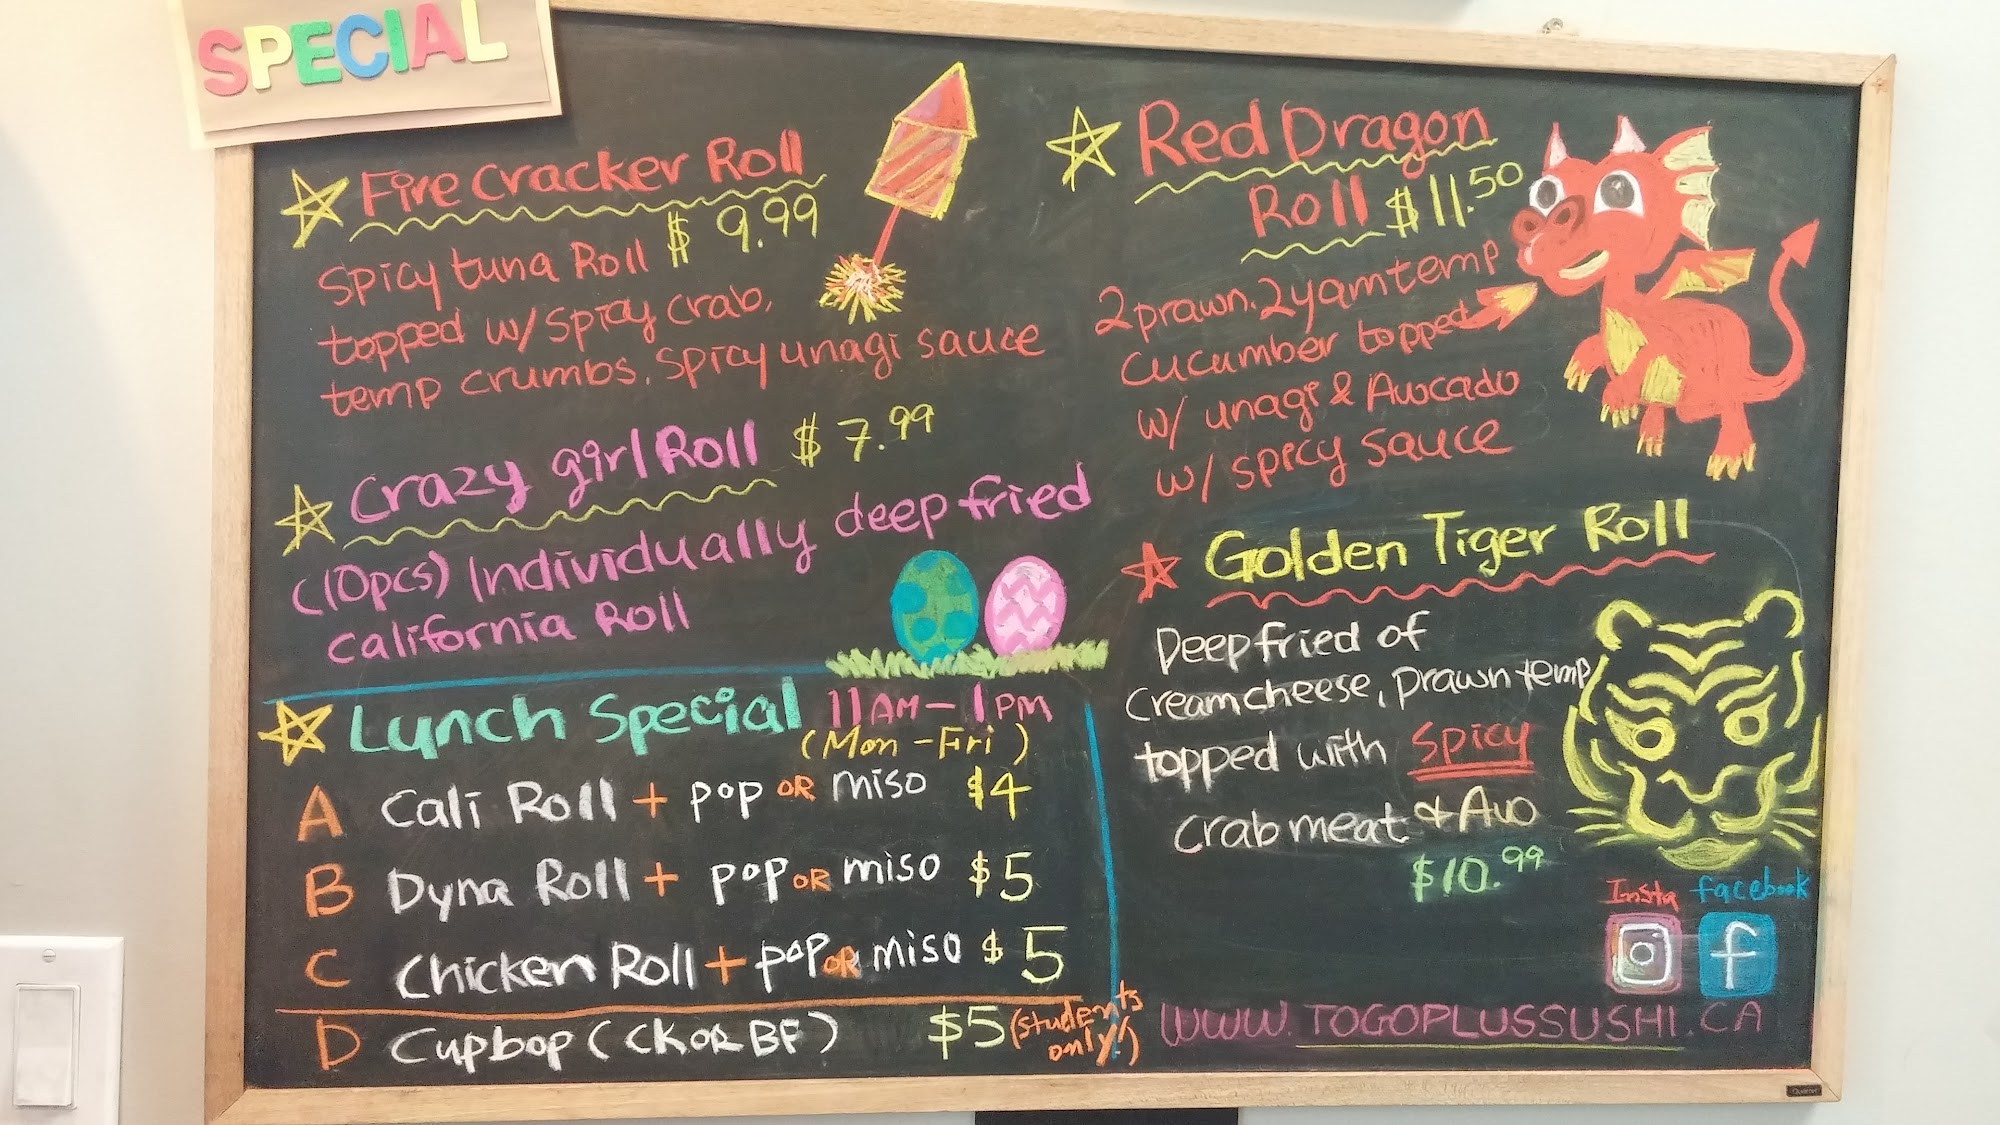 SPECIAL
Fire Cracker Roll
$ 9.99
Spicy tuna Roll
topped w/ Spicy crab,
temp crumbs. Spicy unagi sauce
Crazy girl Roll $ 7.99
(10pcs) Individually deep fried
California Roll
Lunch Special 11AM - 1PM
(Mon - Fri)
A Cali Roll + pop OR miso $4
B Dyna Roll + pop OR miso $5
C Chicken Roll + pop OR miso $5
D Cupbop (CK OR BF) $5 (students only!)
Red Dragon
Roll $11.50
2 prawn. 2 yam temp
cucumber topped
w/ unagi & Avocado
w/ spicy sauce
Golden Tiger Roll
Deep fried of
cream cheese, prawn temp
topped with Spicy
Crab meat & Avo
$10.99
Insta facebook
f
WWW.TOGOPLUSSUSHI.CA